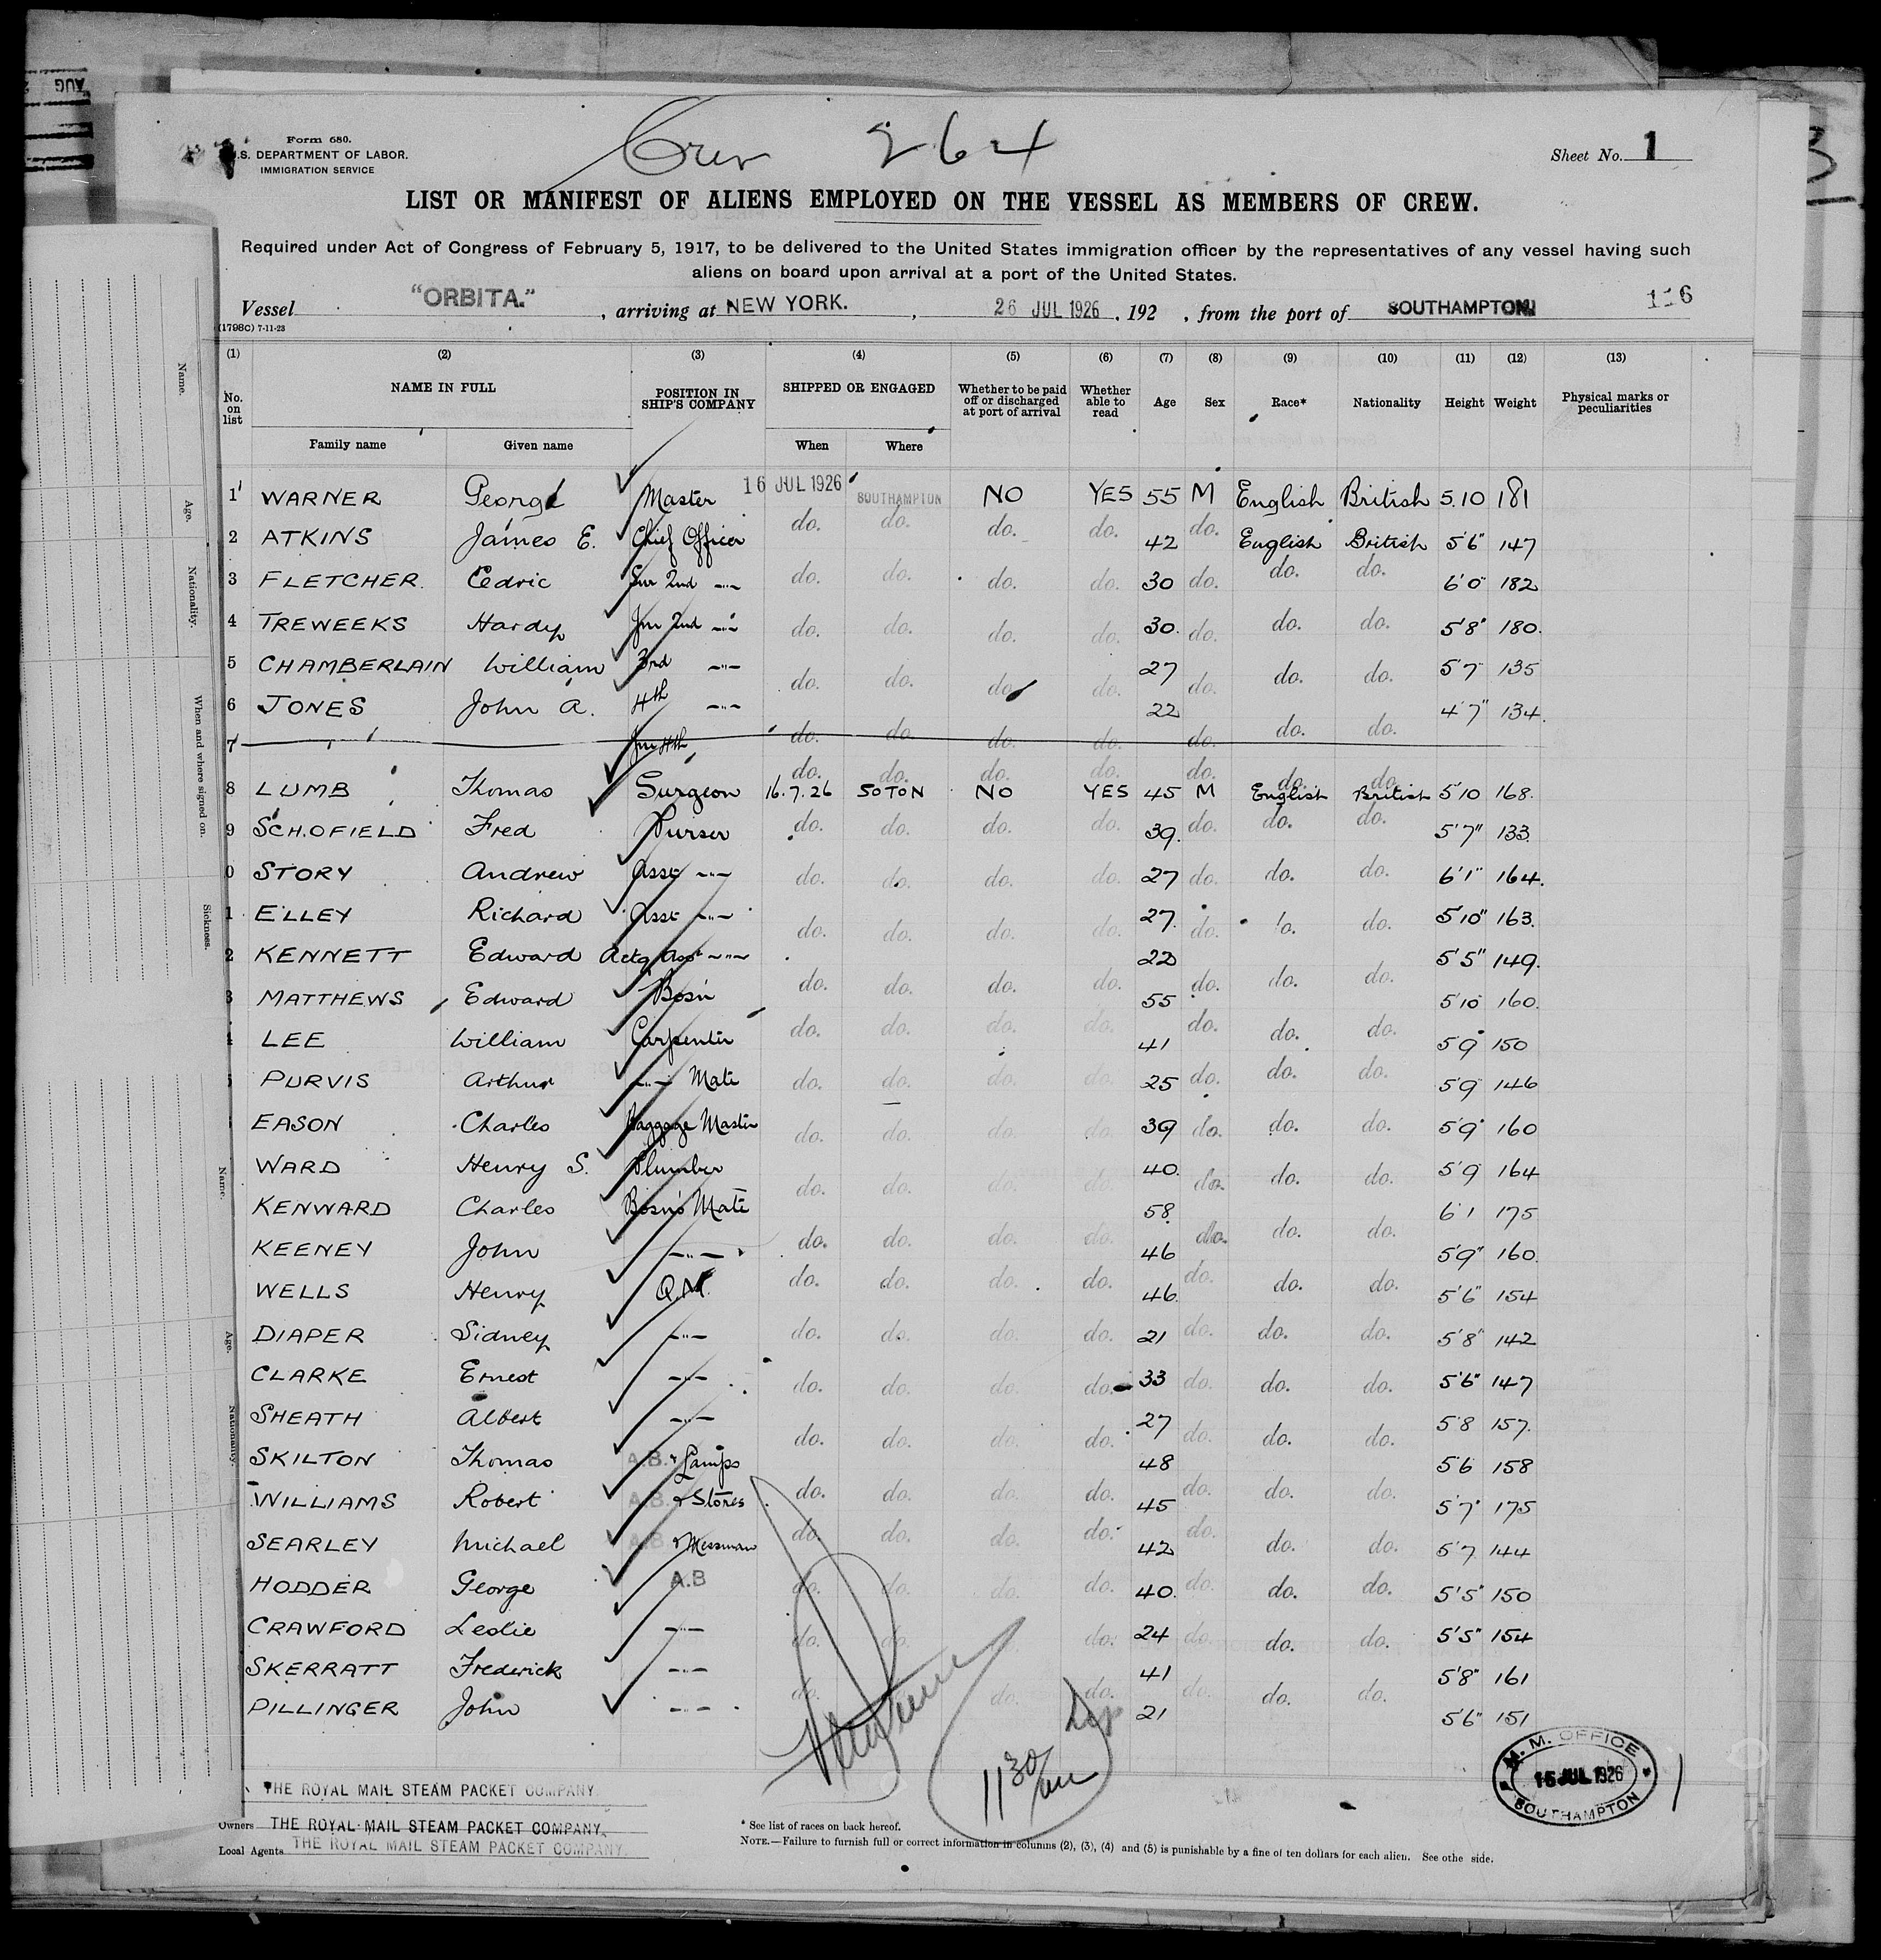 AUG
Crew 264
Form 680.
U.S. DEPARTMENT OF LABOR.
IMMIGRATION SERVICE
Sheet No. 1
LIST OR MANIFEST OF ALIENS EMPLOYED ON THE VESSEL AS MEMBERS OF CREW.
Required under Act of Congress of February 5, 1917, to be delivered to the United States immigration officer by the representatives of any vessel having such
aliens on board upon arrival at a port of the United States.
Vessel "ORBITA." , arriving at NEW YORK. , 26 JUL 1926 , 192 , from the port of SOUTHAMPTON 116
(1798C) 7-11-23
(1) (2) (3) (4) (5) (6) (7) (8) (9) (10) (11) (12) (13)
No. on list NAME IN FULL POSITION IN SHIP'S COMPANY SHIPPED OR ENGAGED Whether to be paid off or discharged at port of arrival Whether able to read Age Sex Race* Nationality Height Weight Physical marks or peculiarities
Family name Given name When Where
1 WARNER George Master 16 JUL 1926 SOUTHAMPTON NO YES 55 M English British 5.10 181
2 ATKINS James E. Chief Officer do. do. do. do. 42 do. English British 5'6" 147
3 FLETCHER. Cedric Snr 2nd -"- do. do. do. do. 30 do. do. do. 6'0" 182
4 TREWEEKS Hardy Jnr 2nd -"- do. do. do. do. 30. do. do. do. 5'8" 180.
5 CHAMBERLAIN William 3rd -"- do. do. do. do. 27 do. do. do. 5'7" 135
6 JONES John A. 4th -"- 22 4'7" 134.
7 Jnr 4th do. do. do. do. do. do. do.
do. do. do. do. do. do. do.
8 LUMB Thomas Surgeon 16.7.26 SOTON NO YES 45 M English British 5'10 168.
9 SCHOFIELD Fred Purser do. do. do. do. 39. do. do. do. 5'7" 133.
0 STORY Andrew Asst -"- do. do. do. do. 27 do. do. do. 6'1" 164.
1 ELLEY Richard Asst -"- do. do. do. do. 27. do. do. do. 5'10" 163.
2 KENNETT Edward Actg Asst -"- 22 5'5" 149.
3 MATTHEWS Edward Bosn do. do. do. do. 55 do. do. do. 5'10 160.
4 LEE William Carpenter do. do. do. do. 41 do. do. do. 5'9" 150
5 PURVIS Arthur -"- Mate do. do. do. do. 25 do. do. do. 5'9 146
EASON Charles Baggage Master do. do. do. do. 39 do. do. do. 5'9" 160
WARD Henry S. Plumber do. do. do. do. 40. do. do. do. 5'9 164
KENWARD Charles Bosn's Mate 58. 6'1 175
KEENEY John -"- do. do. do. do. 46 do. do. do. 5'9" 160.
WELLS Henry Q.M. do. do. do. do. 46. do. do. do. 5'6" 154
DIAPER Sidney -"- do. do. do. do. 21 do. do. do. 5'8" 142
CLARKE Ernest -"- do. do. do. do. 33 do. do. do. 5'6" 147
SHEATH Albert -"- do. do. do. do. 27 do. do. do. 5'8 157.
SKILTON Thomas A.B. & Lamps 48 5'6 158
WILLIAMS Robert A.B. & Stores do. do. do. do. 45 do. do. do. 5'7" 175
SEARLEY Michael A.B & Messman do. do. do. do. 42 do. do. do. 5'7 144
HODDER George A.B do. do. do. do. 40. do. do. do. 5'5" 150
CRAWFORD Leslie -"- do. do. do. 24 do. do. do. 5'5" 154
SKERRATT Frederick -"- 41 5'8" 161
PILLINGER John -"- do. do. do. do. 21 do. do. do. 5'6" 151
11 30/am
M. M. OFFICE
15 JUL 1926
SOUTHAMPTON
THE ROYAL MAIL STEAM PACKET COMPANY
Owners THE ROYAL MAIL STEAM PACKET COMPANY.
Local Agents THE ROYAL MAIL STEAM PACKET COMPANY.
* See list of races on back hereof.
NOTE.—Failure to furnish full or correct information in columns (2), (3), (4) and (5) is punishable by a fine of ten dollars for each alien. See othe side.
Name.
Age.
Nationality.
When and where signed on.
Sickness.
Name.
Age.
Nationality.